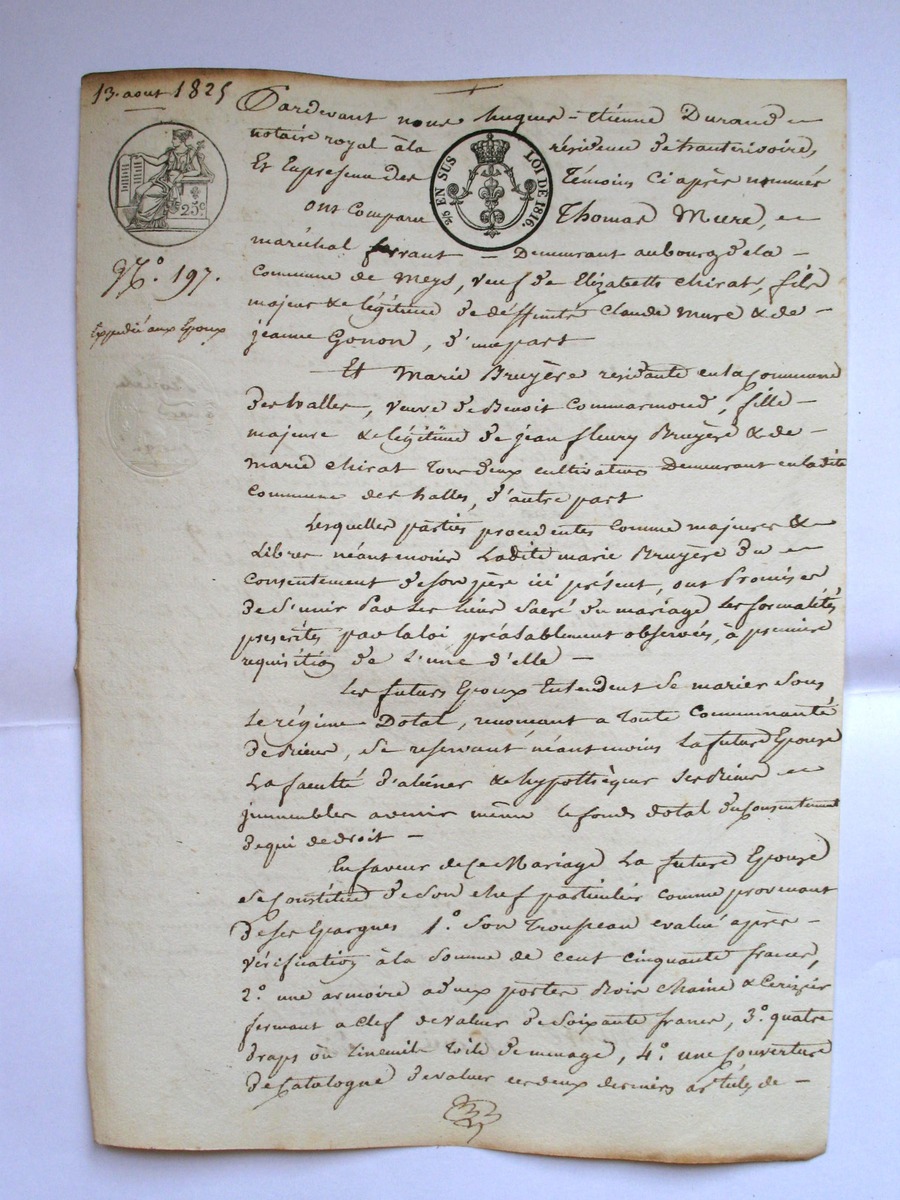 13. aout 1825
Pardevant nous hugues - Etienne Durand
notaire royal à la résidence de
Et En presence des Témoins Ci après nommés
EN SUS LOI DE 1816.
25 c
ont Comparu Thomas Mure,
maréchal ferrant - Demeurant au bourg de la -
N.o 197.
Commune de meys, veuf de Elizabeth chirat, fils
majeur & légitime de deffunts Claude mure & de -
Expédié aux Epoux
jeanne Gonon, d'une part
Et Marie Bruyère résidante en la Commune
des halles, veuve de Benoit Commarmond, fille -
majeure & légitime de jean fleury Bruyère & de -
marie chirat tous deux cultivateurs Demeurant en ladite
Commune des halles, d'autre part
Lesquelles parties procedentes Comme majeures &
Libres néantmoins Ladite marie Bruyère du
Consentement de son père ici présent, ont Promis
de s'unir Par Les liens sacré du mariage les formalités
prescrites par la loi préalablement observées, à première
requisition de L'une d'elle -
Les futurs Epoux Entendent Se marier Sous
Le régime Dotal, renonçant a toute Communauté
de Biens, Se reservant néantmoins La future Epouse
La faculté d'aliéner & hypothéquer ses Biens
jmmeubles avenir même le fonds dotal du Consentement
de qui de droit -
En faveur de Ce Mariage La future Epouse
Se Constitue de Son chef particulier comme provenant
de ses Epargnes 1.o Son Trousseau evalué après -
vérification à la Somme de cent cinquante francs,
2.o une armoire a deux portes Bois chaine & Cerizier
fermant a clef de valeur de Soixante francs, 3.o quatre
draps ou linceuils toile de menage, 4.o une Couverture
de Catalogne de valeur ces deux derniers articles de -